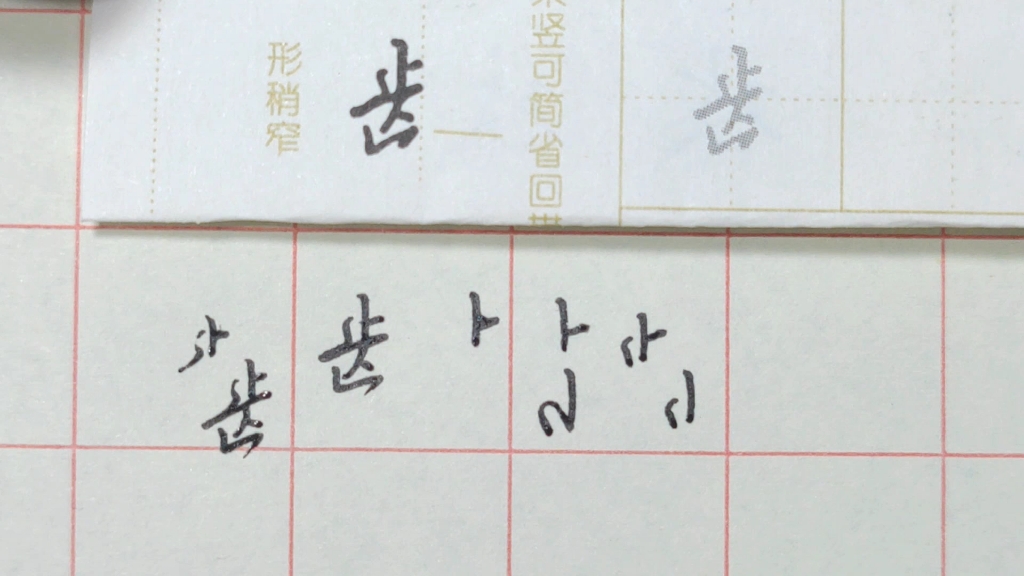 形稍窄
齿
竖可简省回
齿
齿
齿